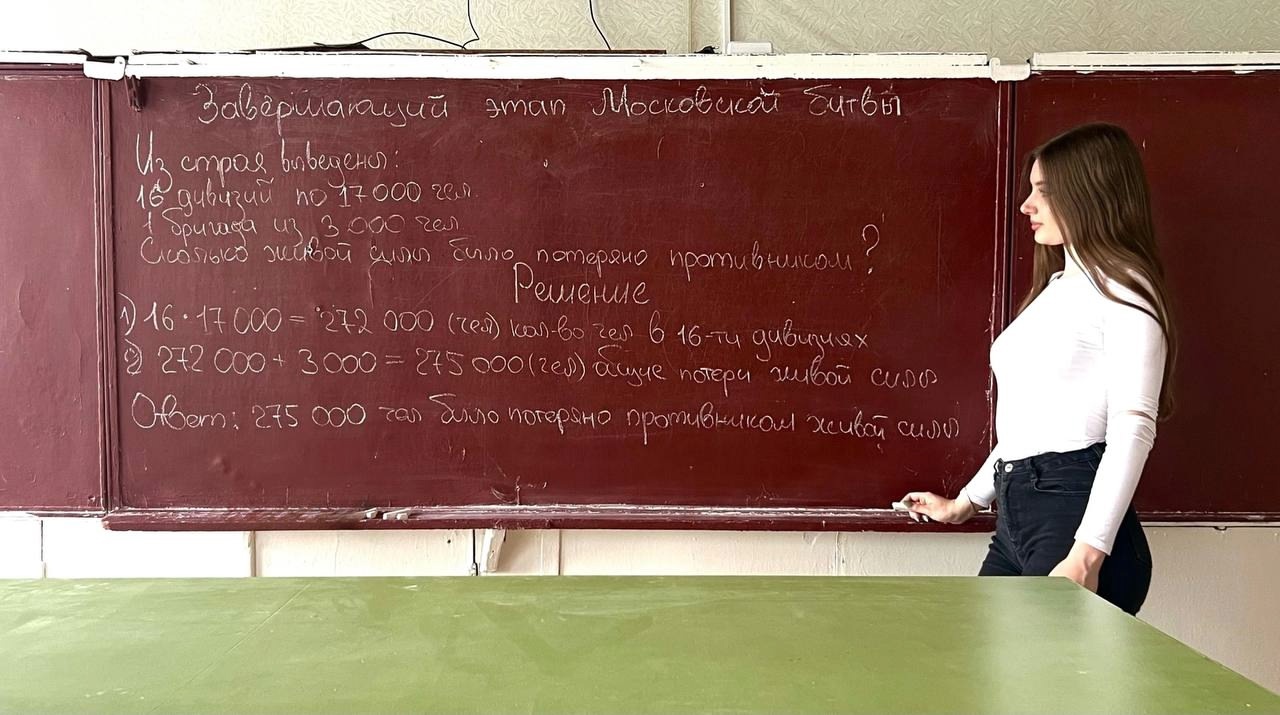 Завершающий этап Московской битвы
Из строя выведены:
16 дивизий по 17 000 чел.
1 бригада из 3 000 чел
Сколько живой силы было потеряно противником?
Решение
1) 16 · 17 000 = 272 000 (чел) кол-во чел в 16-ти дивизиях
2) 272 000 + 3 000 = 275 000 (чел) общие потери живой силы
Ответ: 275 000 чел было потеряно противником живой силы